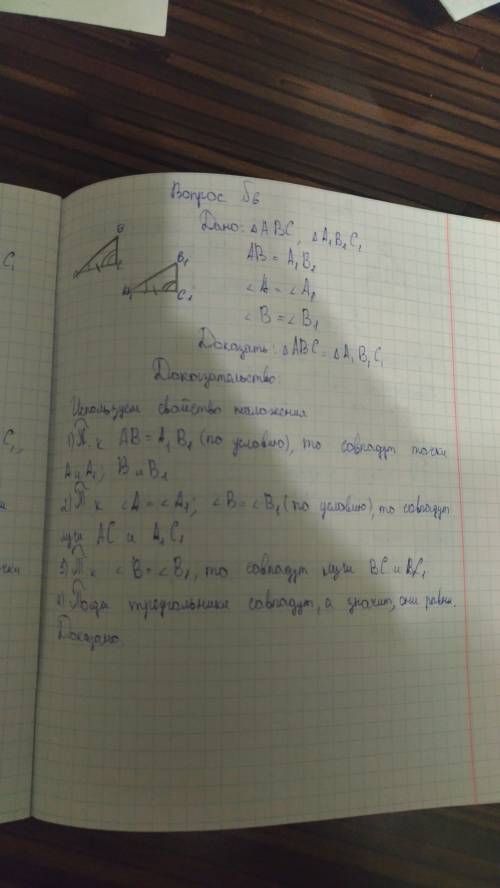 Вопрос Б6
Дано: △ABC, △A₁B₁C₁
AB = A₁B₁
∠A = ∠A₁
∠B = ∠B₁
Доказать: △ABC = △A₁B₁C₁
B
A C
B₁
A₁ C₁
Доказательство:
Используем свойство наложения
1) Т.к AB = A₁B₁ (по условию), то совпадут точки
A и A₁; B и B₁
2) Т.к ∠A = ∠A₁; ∠B = ∠B₁ (по условию), то совпадут
лучи AC и A₁C₁
3) Т.к ∠B = ∠B₁, то совпадут лучи BC и B₁C₁
4) Тогда треугольники совпадут, а значит, они равны.
Доказано.
C₁
C₁,